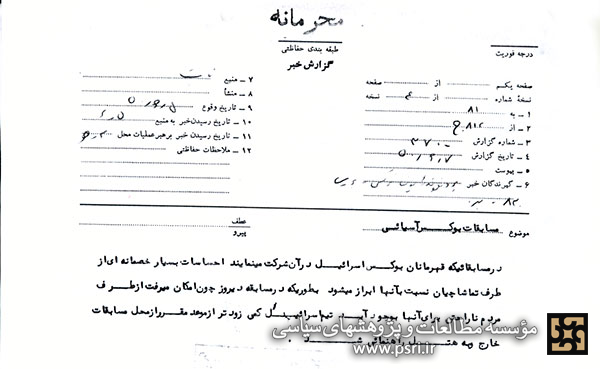 محرمانه
طبقه بندی حفاظتی
درجه فوریت
گزارش خبر
صفحه یکم از صفحه
نسخهٔ شماره از ۴ نسخه
۱ ـ به ۸۱
۲ ـ از ۸۱۴
۳ ـ شماره گزارش
۴ ـ تاریخ گزارش
۵ ـ پیوست
۶ ـ گیرندگان خبر
۷ ـ منبع
۸ ـ منشأ
۹ ـ تاریخ وقوع
۱۰ ـ تاریخ رسیدن خبر به منبع
۱۱ ـ تاریخ رسیدن خبر برهبر عملیات محل
۱۲ ـ ملاحظات حفاظتی
موضوع مسابقات بوکس آسیائی
عطف
پیرو
در مسابقاتیکه قهرمانان بوکس اسرائیل در آن شرکت مینمایند احساسات بسیار خصمانه ای از
طرف تماشاچیان نسبت بآنها ابراز میشود بطوریکه در مسابقه دیروز چون امکان میرفت از طرف
مردم ناراحتی برای آنها بوجود آید تیم اسرائیل کمی زودتر از موعد مقرر از محل مسابقات
خارج وبه هتل راهنمائی شد
مؤسسه مطالعات و پژوهشهای سیاسی
www.psri.ir